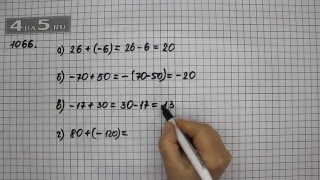 4DA5.RU
1066. а) 26 + (-6) = 26 - 6 = 20
б) -70 + 50 = -(70-50) = -20
в) -17 + 30 = 30 - 17 = 13
г) 80 + (-120) =